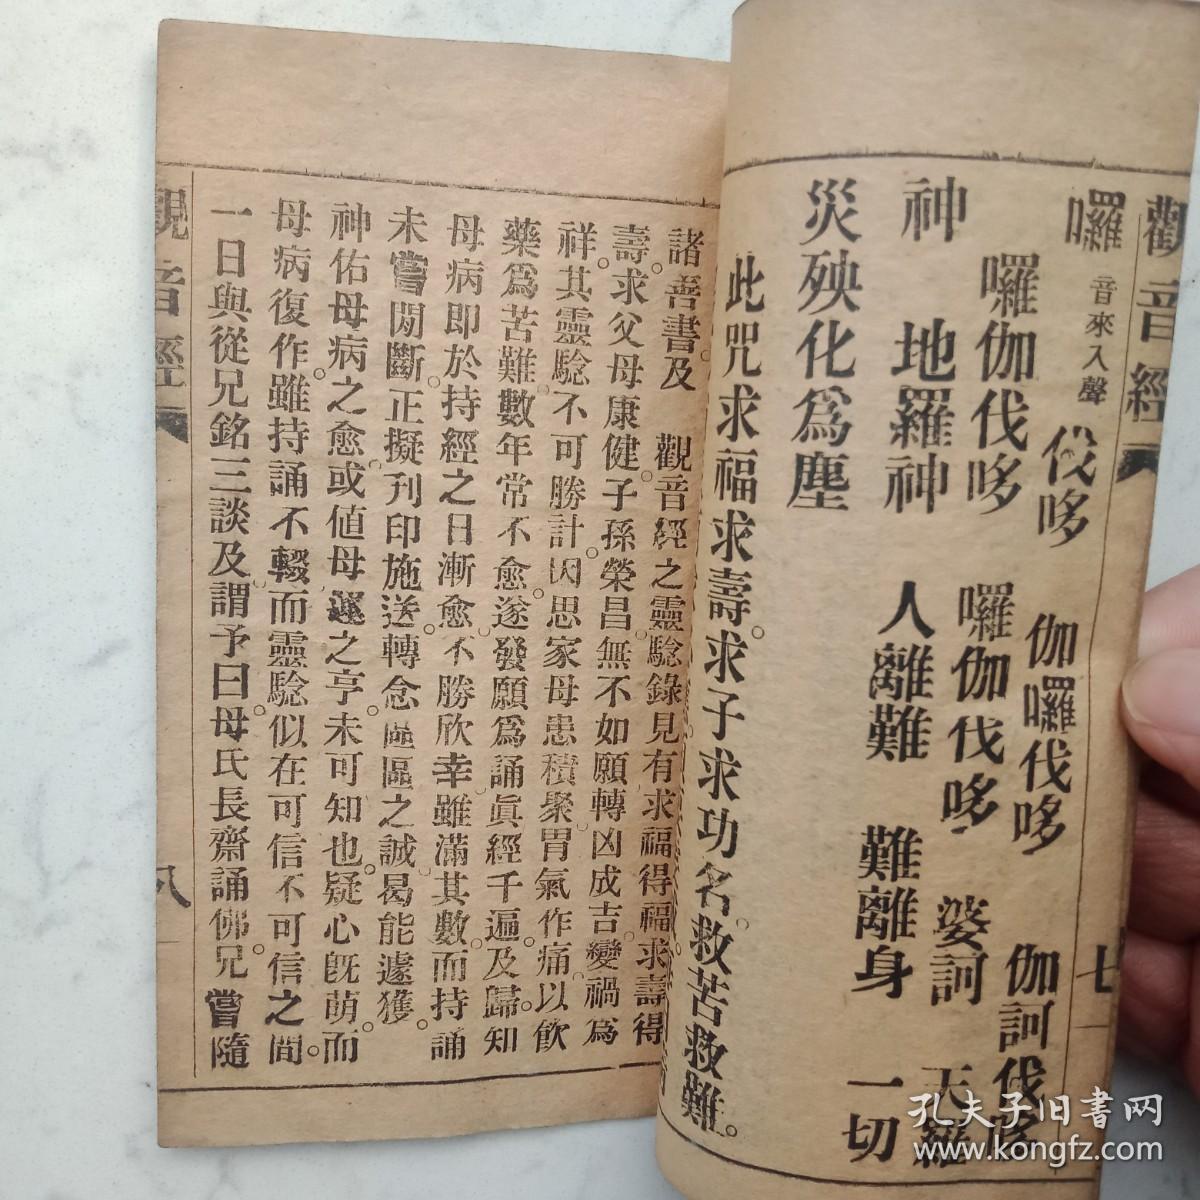 觀音經
七
囉 音來入聲 伐哆 伽囉伐哆 伽訶伐哆
囉伽伐哆 囉伽伐哆 婆訶 天羅
神 地羅神 人離難 難離身 一切
災殃化爲塵
此咒求福求壽。求子求功名。救苦救難。
諸善書及 觀音經之靈騐錄見有求福得福。求壽得
壽。求父母康健。子孫榮昌。無不如願轉凶成吉。變禍爲
祥。其靈騐不可勝計。因思家母患積聚胃氣作痛以飲
藥爲苦難。數年常不愈。遂發願爲誦眞經千遍。及歸知
母病即於持經之日漸愈。不勝欣幸。雖滿其數。而持誦
未嘗閒斷。正擬刋印施送。轉念區區之誠。曷能遽獲
神佑母病之愈。或値母運之亨未可知也。疑心旣萌。而
母病復作。雖持誦不輟。而靈騐似在可信不可信之間。
一日與從兄銘三談及。謂予曰。母氏長齋誦佛。兄嘗隨
觀音經
八
孔夫子旧書网
www.kongfz.com